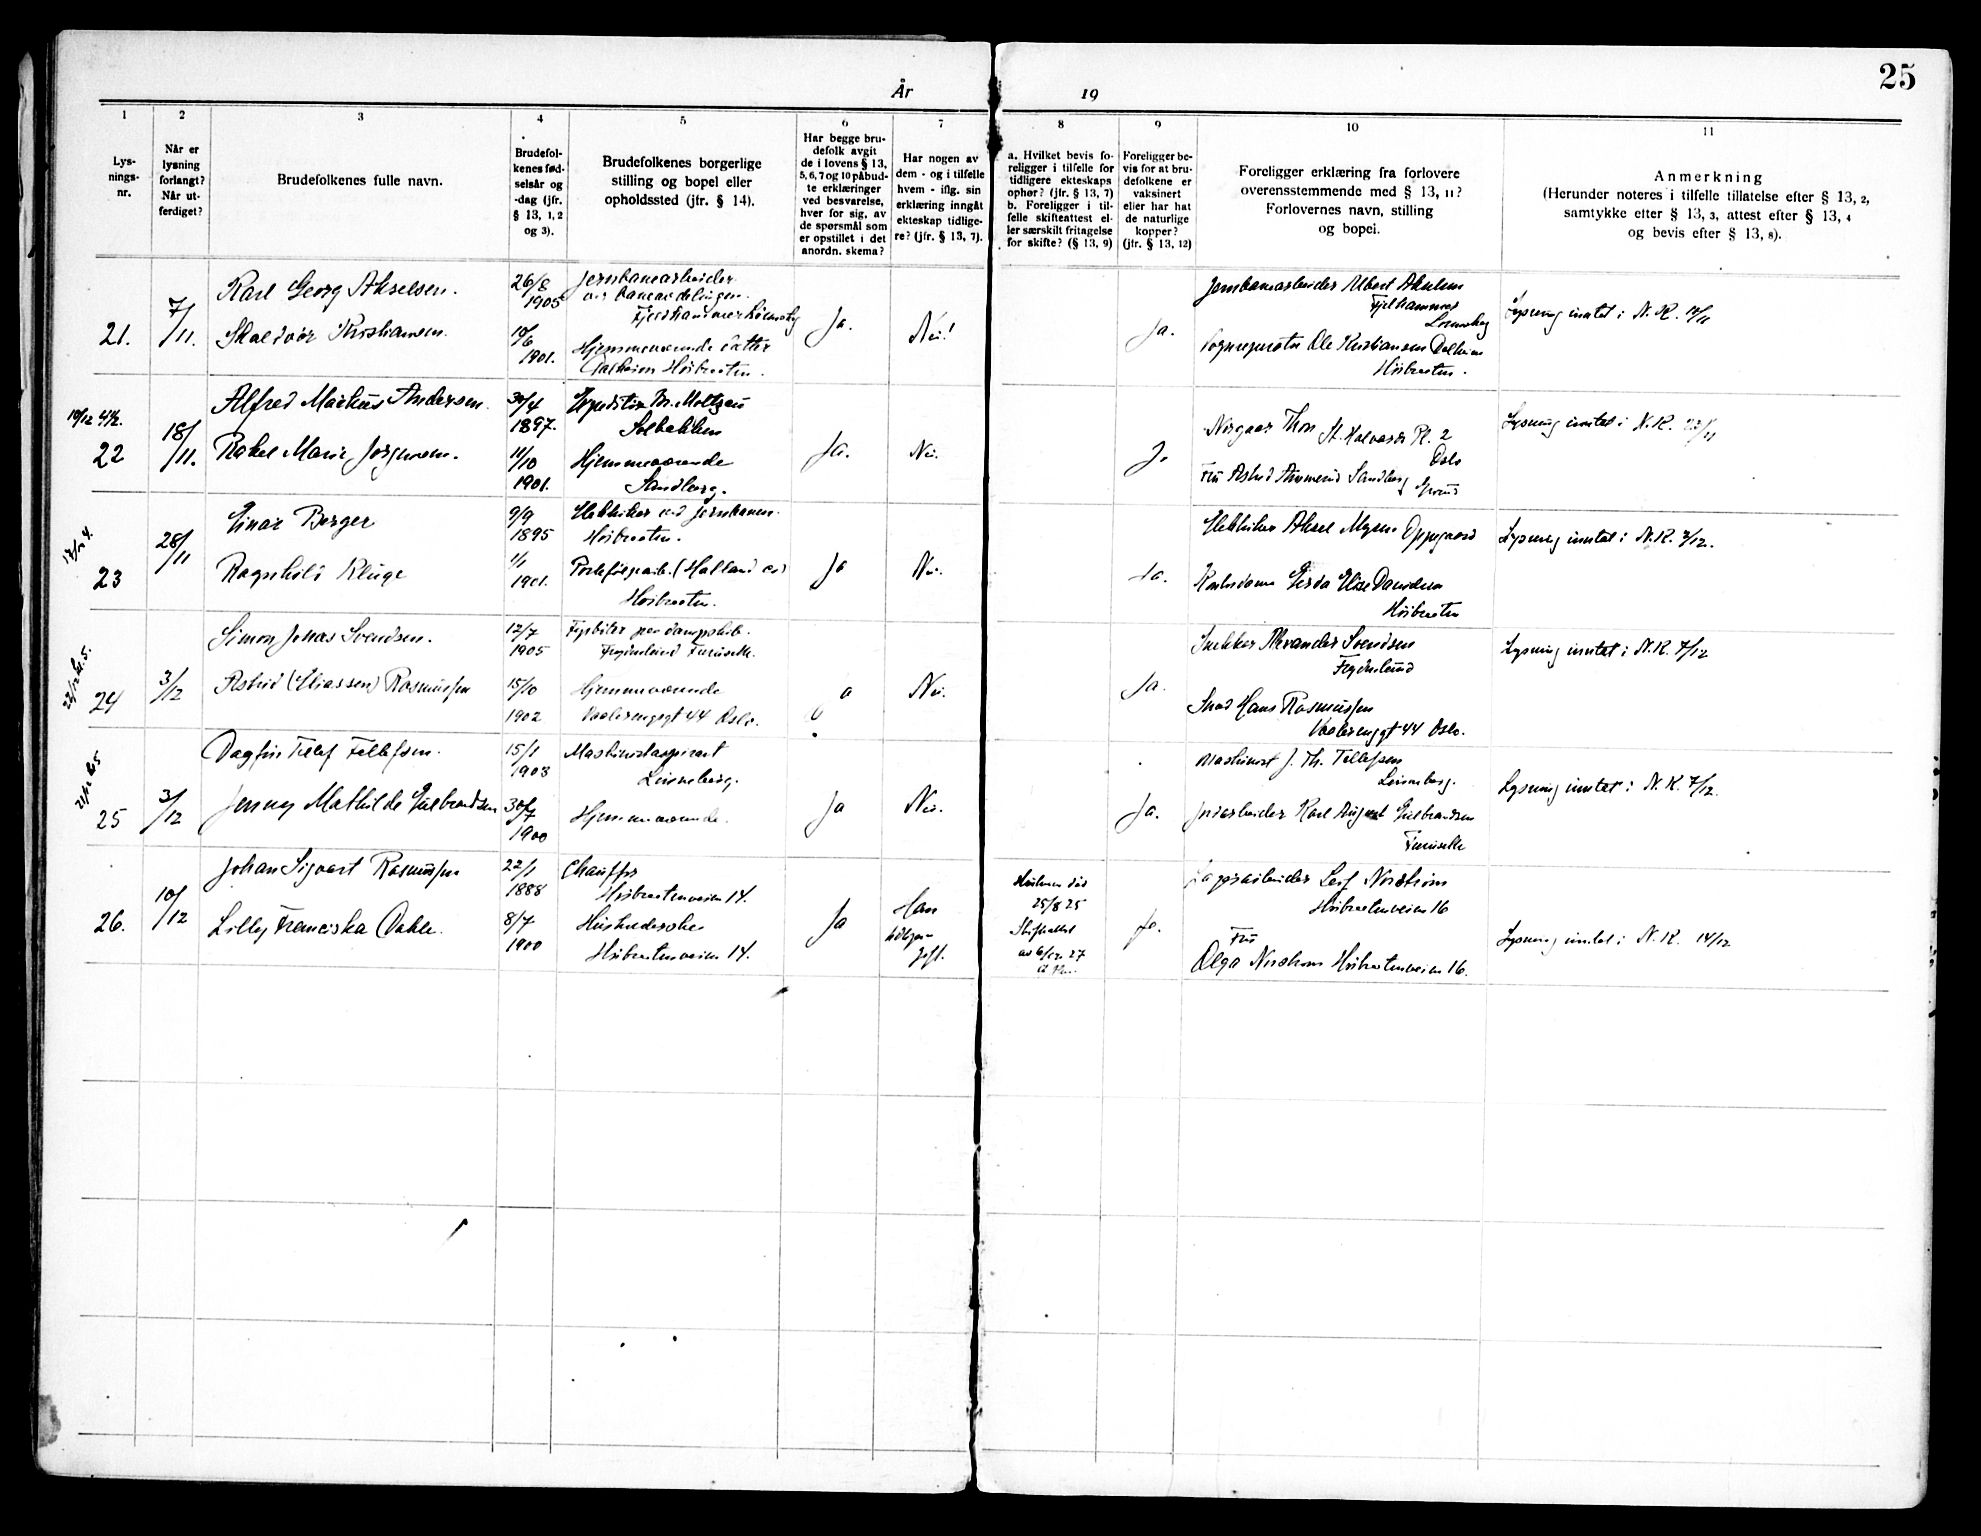 25
År 19
1 2 3 4 5 6 7 8 9 10 11
Lys-
nings-
nr.
Når er
lysning
forlangt?
Når ut-
ferdiget?
Brudefolkenes fulle navn.
Brudefol-
kenes fød-
selsår og
-dag (jfr.
§ 13, 1, 2
og 3).
Brudefolkenes borgerlige
stilling og bopel eller
opholdssted (jfr. § 14).
Har begge bru-
defolk avgit
de i lovens § 13,
5, 6, 7 og 10 påbud-
te erklæringer
ved besvarelse,
hver for sig, av
de spørsmål som
er opstillet i det
anordn. skema?
Har nogen av
dem - og i tilfelle
hvem - iflg. sin
erklæring inngått
ekteskap tidlige-
re? (jfr. § 13, 7).
a. Hvilket bevis fo-
religger i tilfelle for
tidligere ekteskaps
ophør? (jfr. § 13, 7)
b. Foreligger i til-
felle skifteattest el-
ler særskilt fritagelse
for skifte? (§ 13, 9)
Foreligger be-
vis for at bru-
defolkene er
vaksinert
eller har hat
de naturlige
kopper?
(jfr. § 13, 12)
Foreligger erklæring fra forlovere
overensstemmende med § 13, 11?
Forlovernes navn, stilling
og bopel.
Anmerkning
(Herunder noteres i tilfelle tillatelse efter § 13, 2,
samtykke efter § 13, 3, attest efter § 13, 4
og bevis efter § 13, 8).
21.
7/11.
Karl Georg Akselsen.
Kristiansen.
26/8
1905
10/6
1901.
Jernbanearbeider
Hjemmeværende datter
Høibraaten.
Ja.
Nei!
Ja.
Jernbanearbeider Albert Akselsen
Fjellhammer
Ole Kristiansen Dalheim
Høibraaten.
Lysning inntat i N. K. 14/11
22
18/11.
Alfred Markus Andersen.
Rakel Marie Jørgensen.
30/4
1897.
11/10
1901.
Solbakken
Hjemmeværende
Sandberg.
Ja.
Nei.
Ja
Thon St. Halvards Pl. 2
Oslo
Fru Astrid Sandberg
Lysning inntat i N. K. 22/11
23
28/11
Einar Berger
Ragnhild Kluge
9/9
1895
1/1
1901.
Elektriker ved jernbanen.
Høibraaten.
Høibraaten.
Ja
Nei.
Ja.
Elektriker Aksel Mysen Oppegaard
Gerda Elise Davidsen
Høibraaten
Lysning inntat i N. K. 3/12.
24
3/12
Simon Jonas Svendsen.
Astrid (Eliassen) Rasmussen
12/7
1905
15/10
1902
Fyrbøter paa dampskib.
Furuseth.
Hjemmeværende
Vaalerenggt 44 Oslo.
Ja
Nei.
Ja.
Snekker Alexander Svendsen
Hans Rasmussen
Vaalerenggt 44 Oslo.
Lysning inntat i N. K. 7/12
25
3/12
Dagfin Tellef Tellefsen.
Jenny Mathilde Gulbrandsen
15/1
1903
30/7
1900
Maskinistaspirant
Hjemmeværende.
Ja
Nei.
Ja.
Maskinist J. Th. Tellefsen
Jordarbeider Karl August Gulbrandsen
Furuseth
Lysning inntat i N. K. 7/12.
26.
10/12
Johan Sigvart Rasmussen
Lilly Franciska Dahle.
22/1
1888
8/7
1900
Chauffør
Høibraatenveien 14.
Husholderske
Høibraatenveien 14.
Ja
Han
tidligere
gift.
Hustruen død
25/8 25
Skifteattest
av 6/12 27
Ja.
Lagerarbeider Leif Nordstrøm
Høibraatenveien 16
Fru
Olga Nordstrøm Høibraatenveien 16.
Lysning inntat i N. K. 14/12